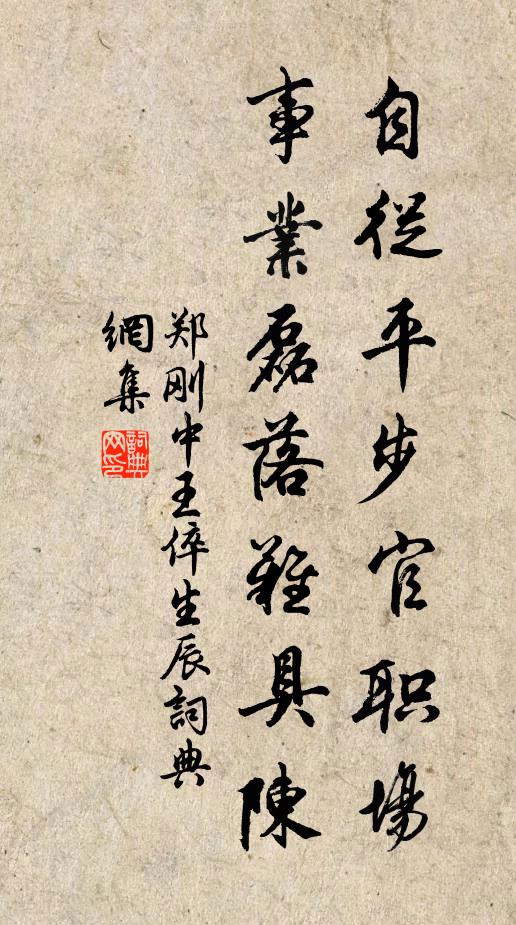 自從平步官职場
事業磊落難具陳
郑剛中王倅生辰詞典
網集
詞典
网印